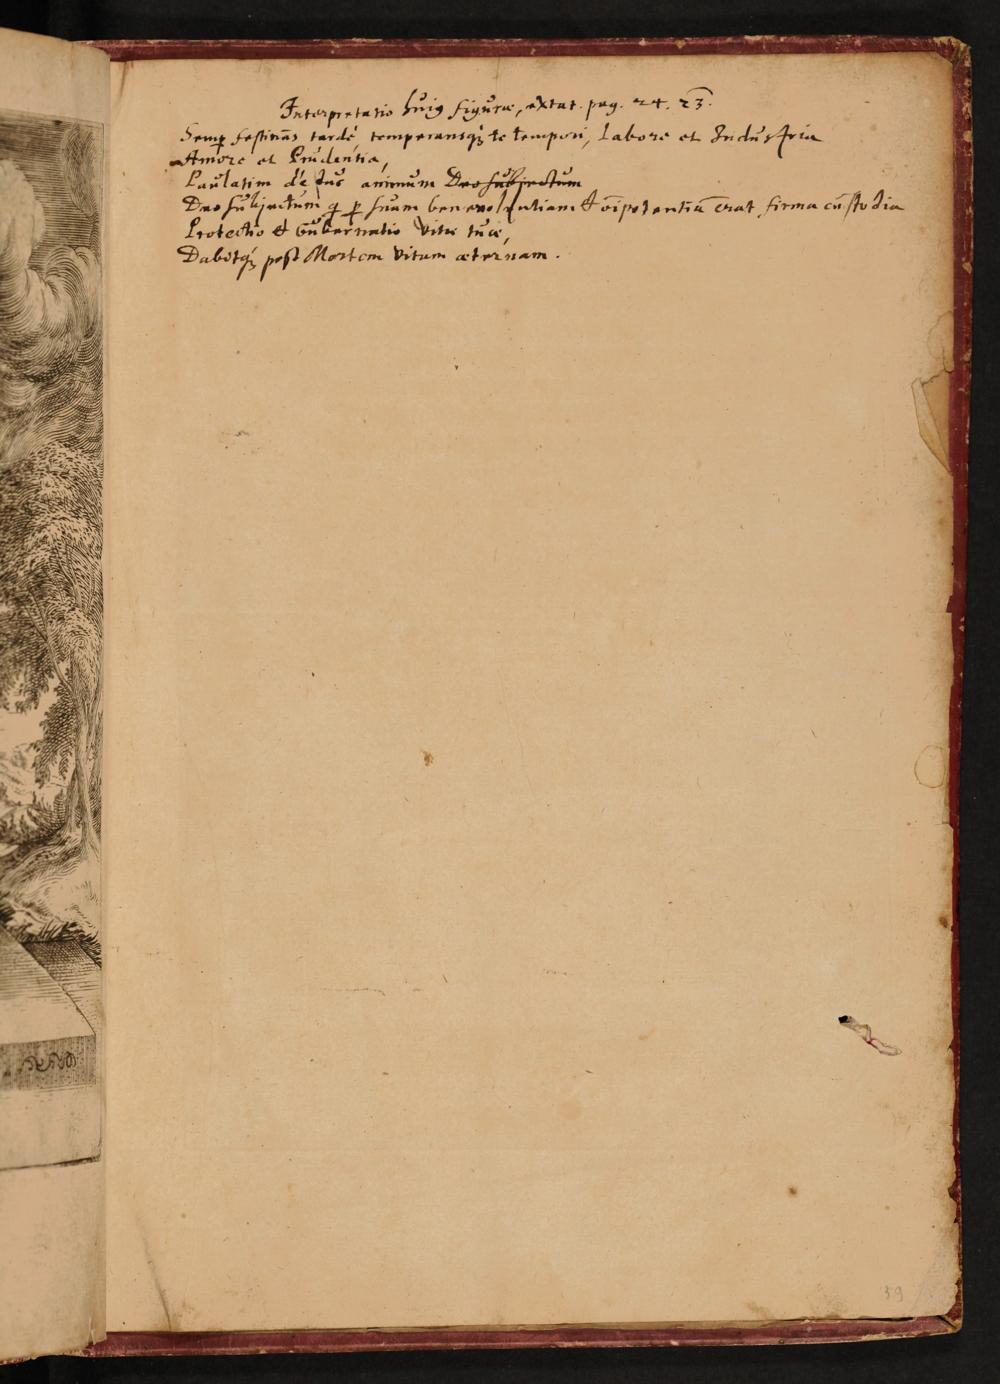 Interpretatio huiꝰ figuræ, extat. pag. 24. 23.
Semꝑ festinãs tardé temperansqꝫ te tempori, Labore et Industria
Amore et Prudentia,
Paulatim animum Deo subjectum
Deo subjectum q̨ ꝑ suam benevolentiam & oı̃potentiã erat firma custodia
Protectio & Gubernatio Vitæ tuæ,
Dabitqꝫ post Mortem Vitam æternam.
39